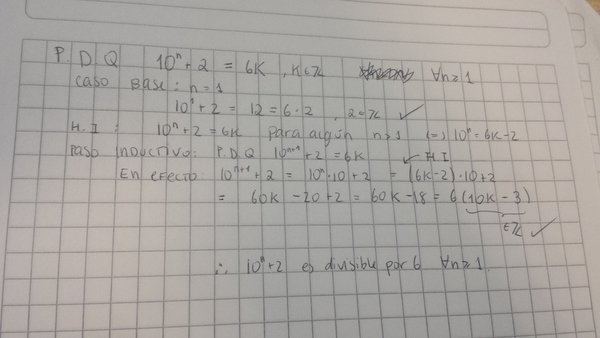 P. D. Q 10ⁿ + 2 = 6K , K ∈ ℤ ∀n≥1
Caso Base: n = 1
10¹ + 2 = 12 = 6·2 , 2 ∈ ℤ ✓
H. I : 10ⁿ + 2 = 6K para algún n>1 (=) 10ⁿ = 6K-2
Paso Inductivo: P.D.Q 10ⁿ⁺¹ + 2 = 6K ↙ H.I
En efecto: 10ⁿ⁺¹ + 2 = 10ⁿ·10 + 2 = (6K-2)·10+2
= 60K - 20 + 2 = 60K - 18 = 6(10K - 3)
∈ ℤ ✓
∴ 10ⁿ+2 es divisible por 6 ∀n≥1.